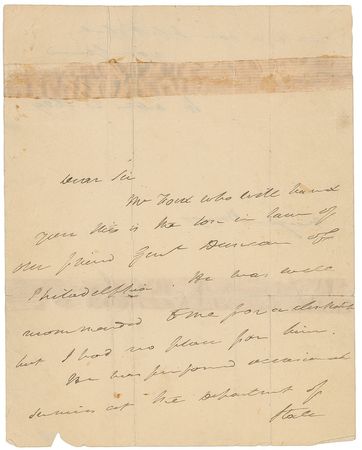 Dear Sir
Mr who will hand
you this is the son in law of
our friend Genl Duncan of
Philadelphia. He was well
recommended to me for a clerkship
but I had no place for him.
He has performed occasional
services at the Department of
State